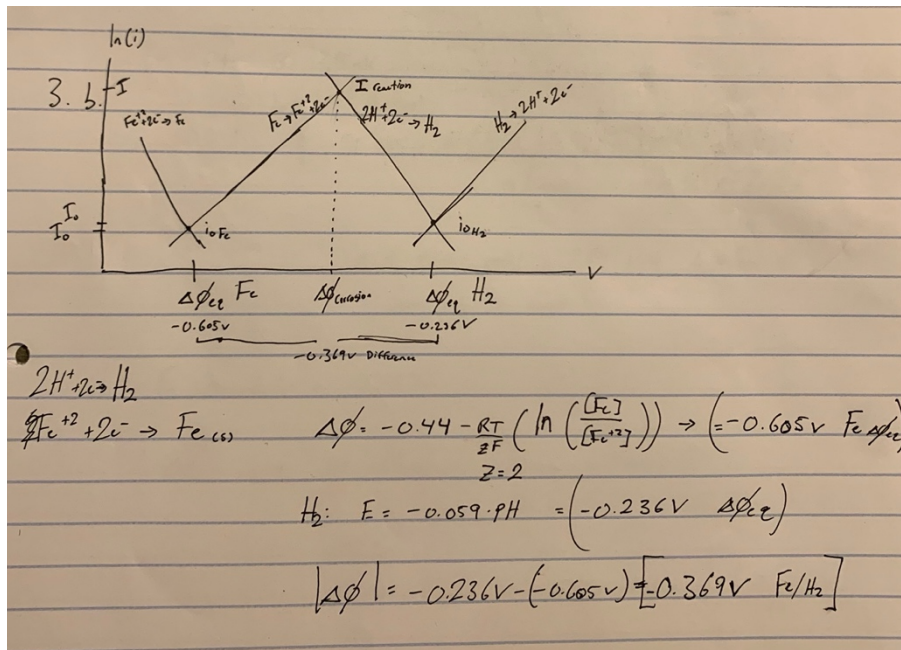 ln(i)
3. b. I
I reaction
Fe⁺²+2e⁻→Fe
Fe→Fe⁺²+2e⁻
2H⁺+2e⁻→H₂
H₂→2H⁺+2e⁻
I₀
I₀
i₀Fe
i₀H₂
V
Δϕeq Fe
Δϕcorrosion
Δϕeq H₂
-0.605V
-0.236V
-0.369V Difference
2H⁺+2e⁻→H₂
Fe⁺²+2e⁻ → Fe(s)
Δϕ= -0.44 - RT/zF (ln([Fe]/[Fe⁺²])) → (=-0.605V Fe Δϕeq)
z=2
H₂: E = -0.059·pH = (-0.236V Δϕeq)
|Δϕ| = -0.236V-(-0.605V) = [-0.369V Fe/H₂]